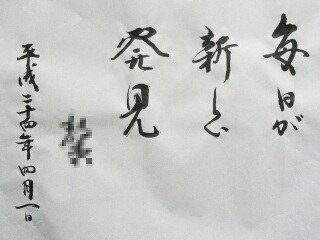 毎日が
新しい
発見
平成二十四年四月一日